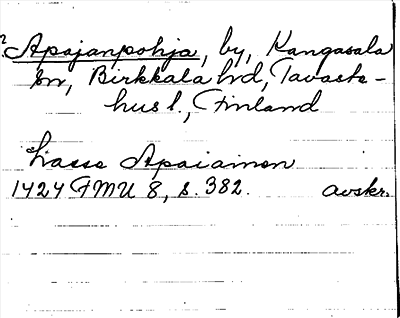 ? Apajanpohja, by, Kangasala
sn, Birkkala hd, Tavaste-
hus l., Finland
Lasse Apaiainen
1424 FMU 8, s. 382. avskr.